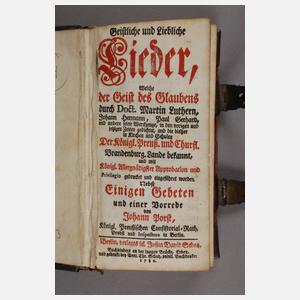 Geistliche und Liebliche
Lieder,
Welche
der Geist des Glaubens
durch Doct. Martin Luthern,
Johann Hermann, Paul Gerhard,
und andere seine Werckzeuge, in den vorigen und
jetzigen Zeiten gedichtet, und die bisher
in Kirchen und Schulen
Der Königl. Preuß. und Churfl.
Brandenburg. Lande bekannt,
und mit
Königl. Allergnädigster Approbation und
Privilegio gedrucket und eingeführet worden
Nebst
Einigen Gebeten
und einer Vorrede
von
Johann Porst,
Königl. Preußischen Consistorial-Rath,
Probst und Inspectore in Berlin.
Berlin, verlegts sel. Justus David
Buchbinders an der langen Brücke, Erben,
und gedruckt bey